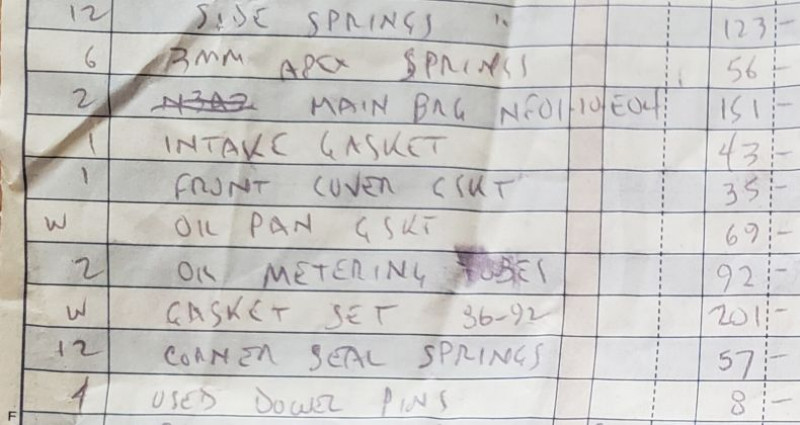 12 SIDE SPRINGS " 123 -
6 3MM APEX SPRINGS 56 -
2 N3A2 MAIN BRG NF01-10-E04 151 -
1 INTAKE GASKET 43 -
1 FRONT COVER GSKT 35 -
W OIL PAN GSKT 69 -
2 OIL METERING TUBES 92 -
W GASKET SET 86-92 201 -
12 CORNER SEAL SPRINGS 57 -
4 USED DOWEL PINS 8 -
F